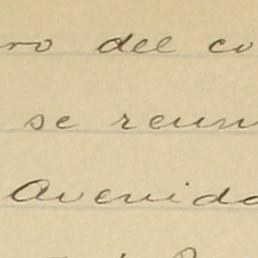 ro del co
se reun
Avenida